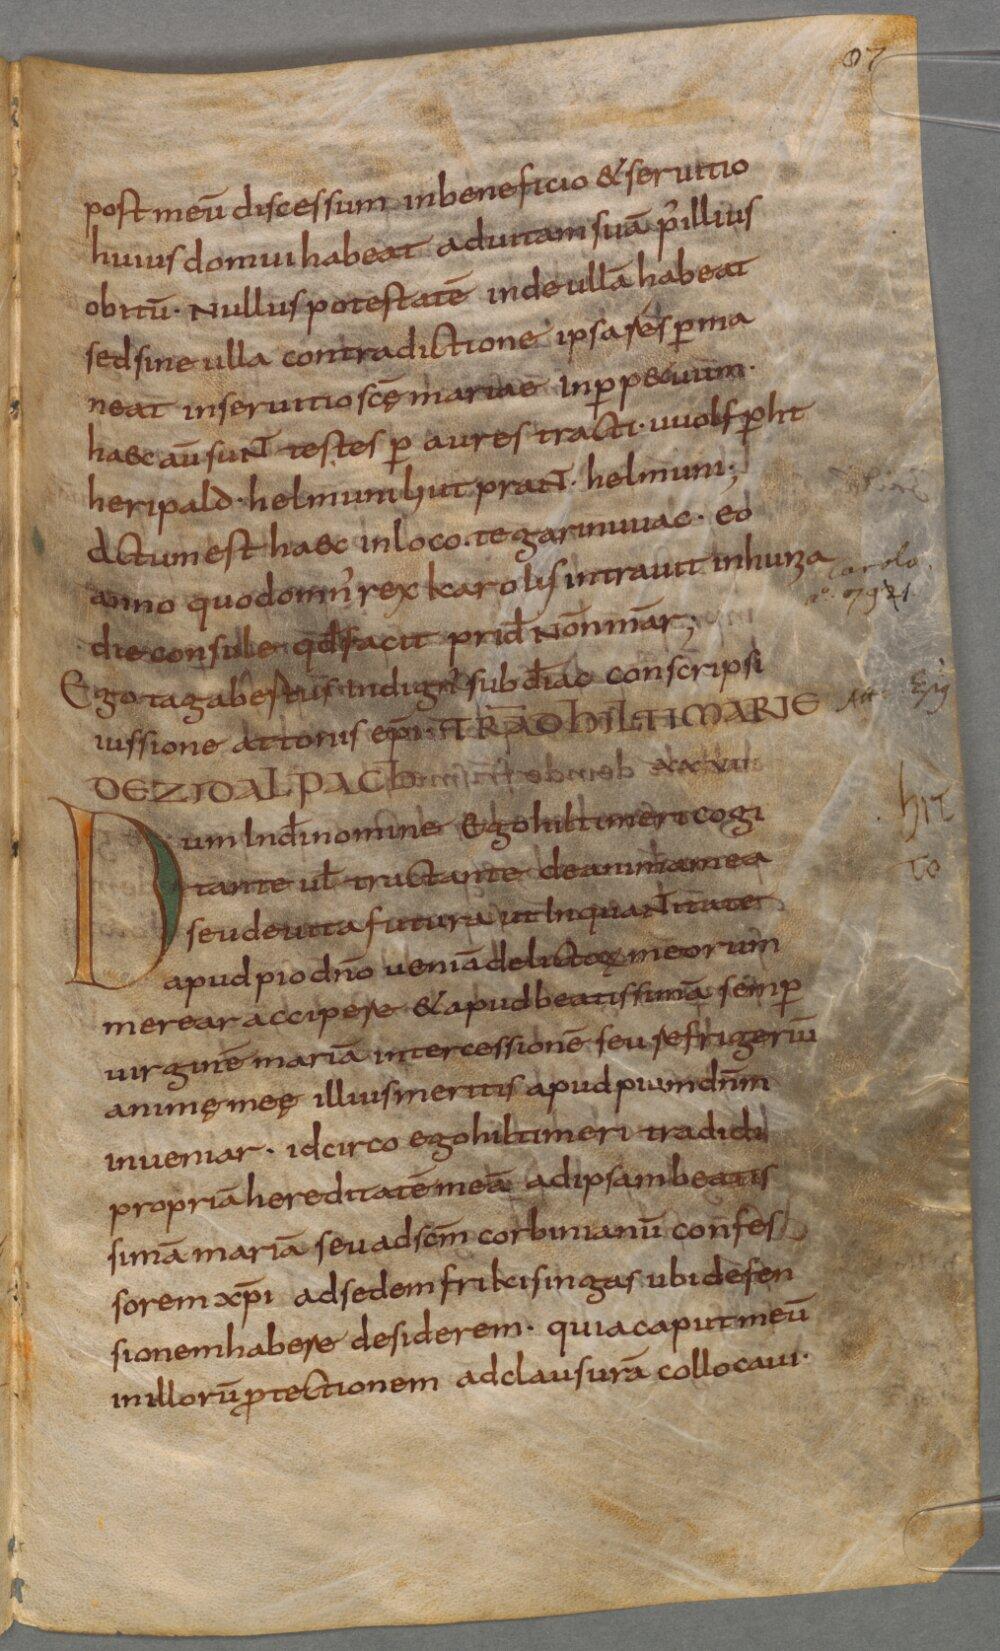 97
post meū discessum in beneficio & seruitio
huius domui habeat ad uitam suā p' illius
obitū. Nullus potestatē inde ullā habeat
sed sine ulla contradictione ipsa res ꝑma
neat in seruitio scę mariae in ꝑp&uum.
haec aū sunt testes ꝑ aures tracti. uuolfꝑht
heripald. helmuni hut prant. helmuni;
actum est haec in loco. tegarinuuac. eo
anno quo domn' rex karolus intrauit in hunza
carolo.
aº. 791
die consule qd facit prid Non mar;
Ego tagabertus indign' sub diac conscripsi
iussione attonis epi. TRAD HILTIMARIE
Att: Epi
DE ZIDALPACH
hIT
TO
Dum In dī nomine Ego hiltimeri cogi
tante ul tractante de anima mea
seu de uita futura ut In quantitate
apud pio dn̄o ueniā delictoꝝ meorum
merear accipere & apud beatissimā semꝑ
uirginē mariā intercessionē seu refrigeriū
animę meę illius meritis apud pium dn̄m
inueniar. idcirco ego hiltimeri tradidi
propriā hereditatē meā ad ipsam beatis
simā mariā seu ad scm̄ corbinianū confes
sorem xp̄i ad sedem frikisingas ubi defen
sionem habere desiderem. quia caput meū
in illorū ꝓtectionem ad clausurā collocaui.